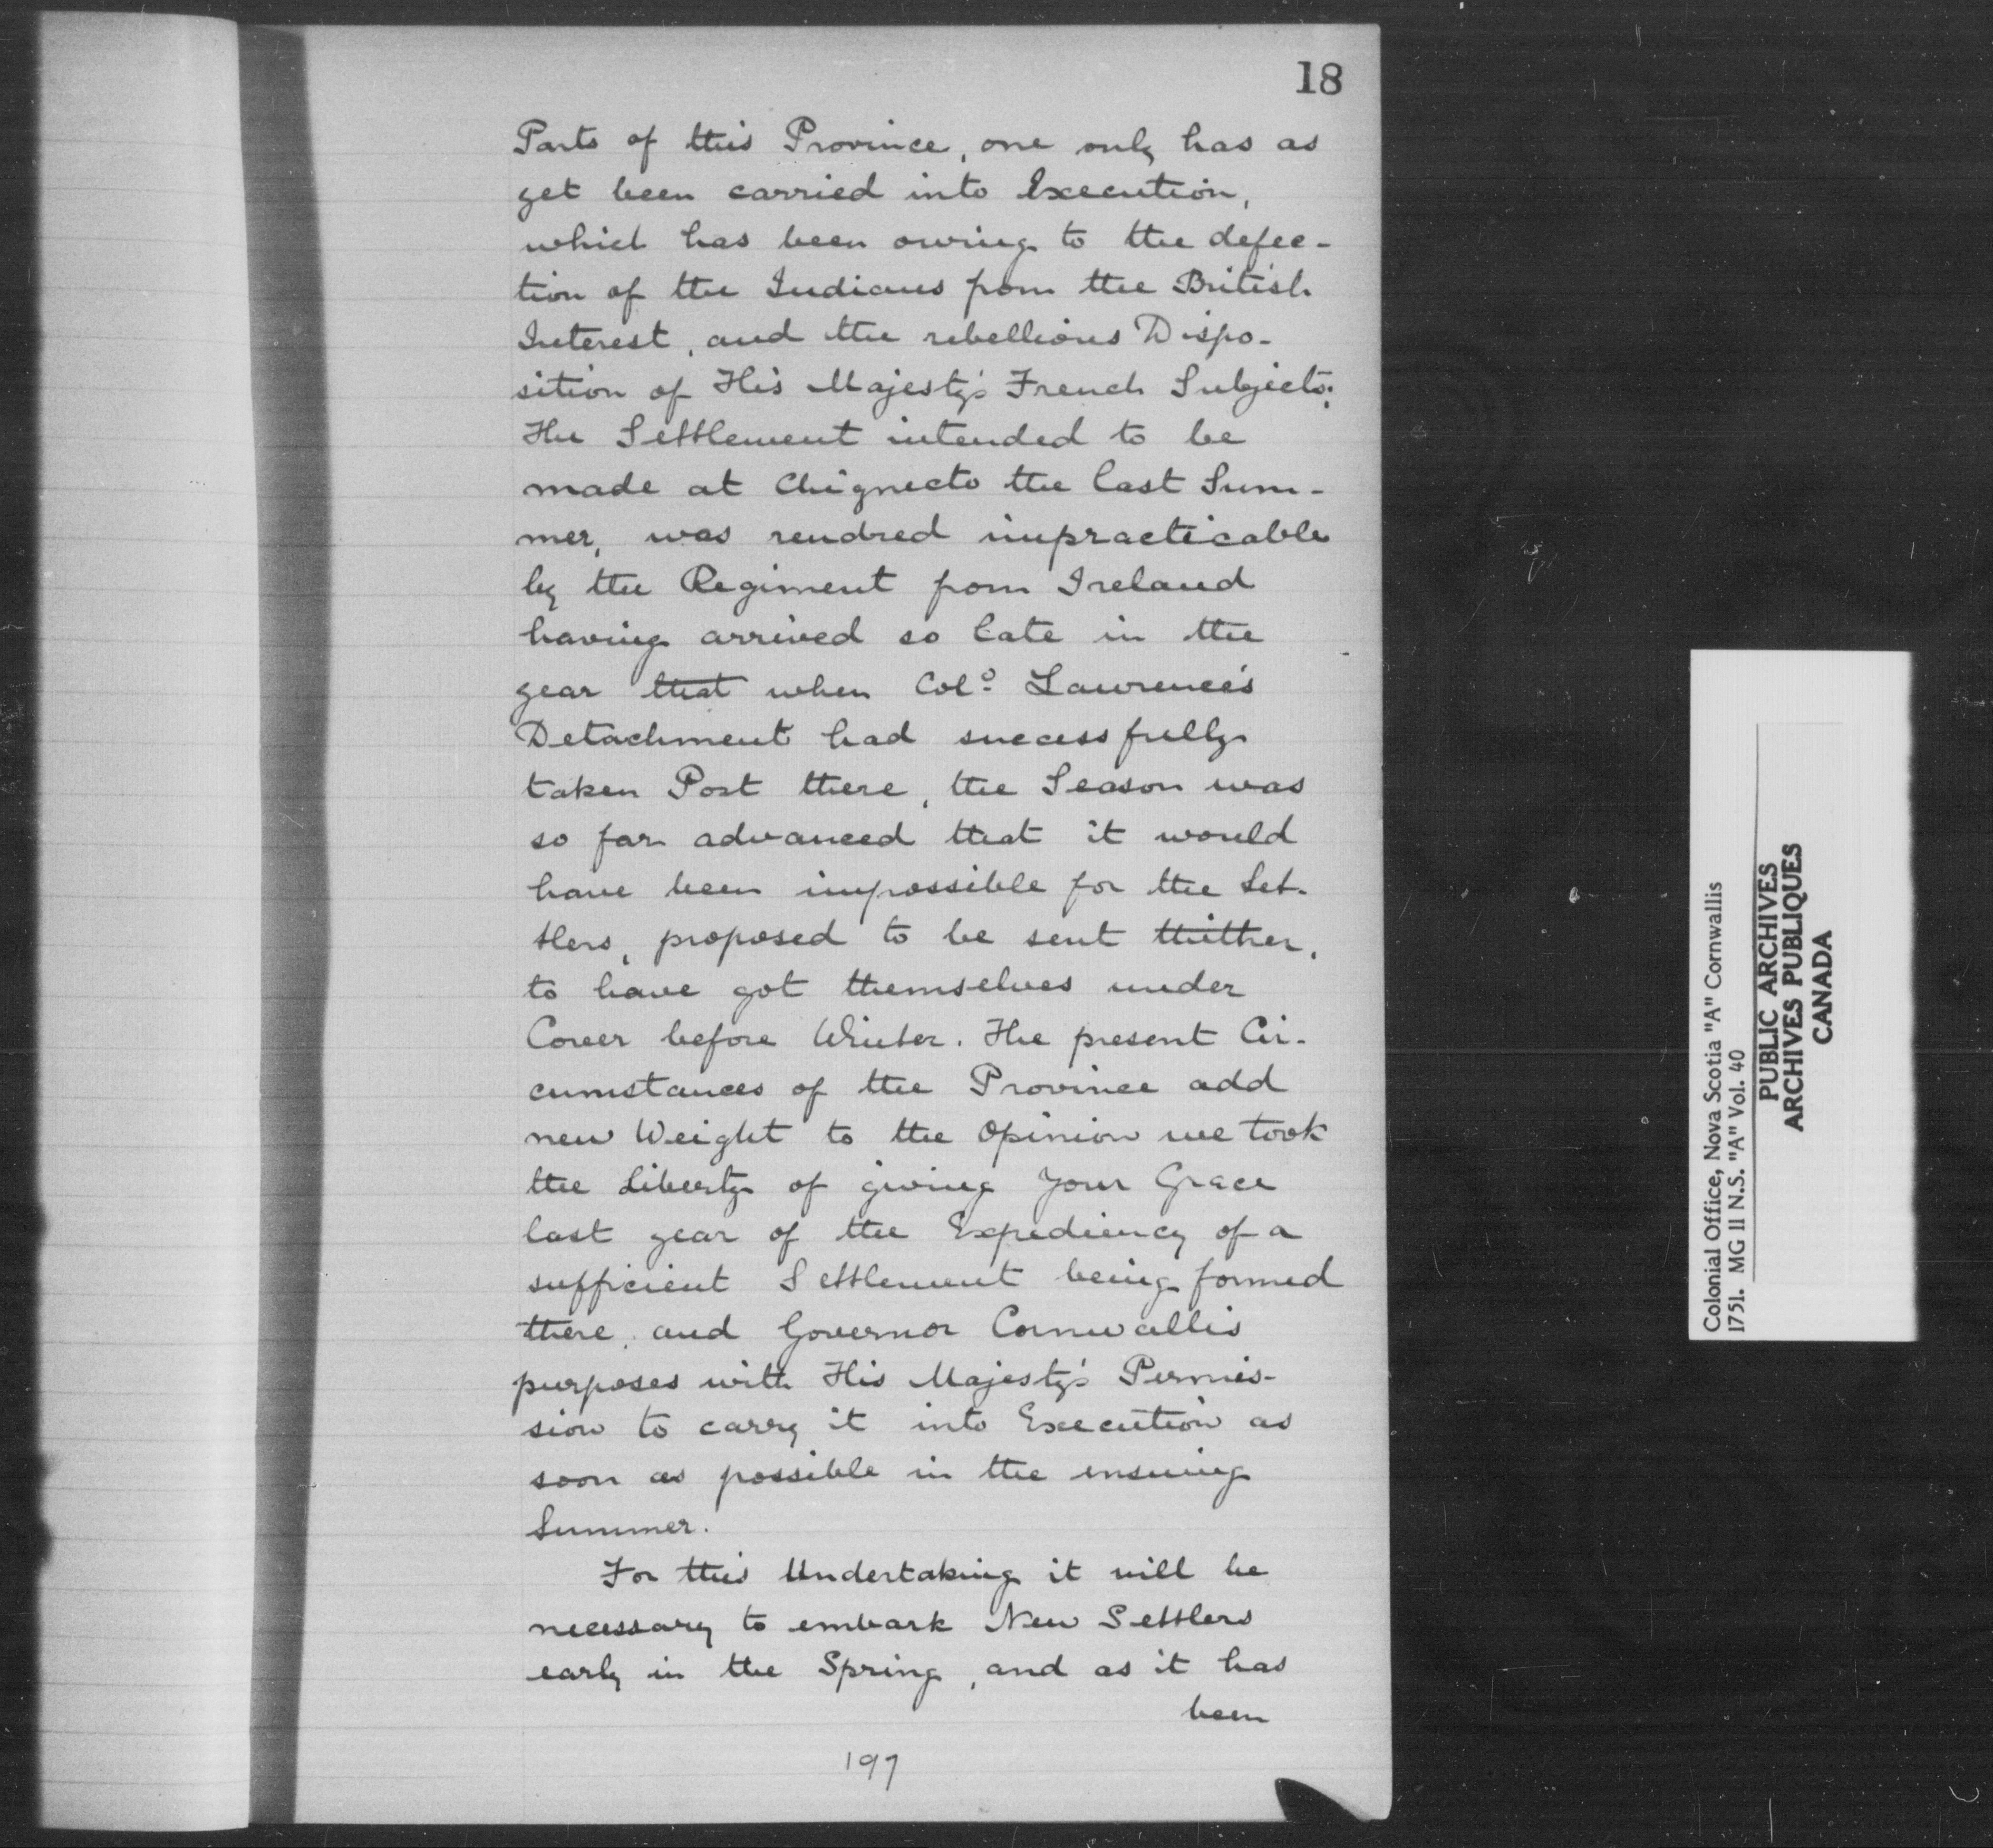 18
Parts of this Province, one only has as
yet been carried into Execution,
which has been owing to the defec-
tion of the Indians from the British
Interest, and the rebellious Dispo-
sition of His Majesty's French Subjects:
The Settlement intended to be
made at Chignecto the last Sum-
mer, was rendred impracticable
by the Regiment from Ireland
having arrived so late in the
year that when Colo. Lawrence's
Detachment had successfully
taken Post there, the Season was
so far advanced that it would
have been impossible for the Set-
tlers, proposed to be sent thither,
to have got themselves under
Cover before Winter. The present Cir-
cumstances of the Province add
new Weight to the Opinion we took
the Liberty of giving Your Grace
last year of the Expediency of a
sufficient Settlement being formed
there, and Governor Cornwallis
purposes with His Majesty's Permis-
sion to carry it into Execution as
soon as possible in the ensuing
Summer.
For this Undertaking it will be
necessary to embark New Settlers
early in the Spring, and as it has
been
197
Colonial Office, Nova Scotia "A" Cornwallis
1751. MG 11 N.S. "A" Vol. 40
PUBLIC ARCHIVES
ARCHIVES PUBLIQUES
CANADA